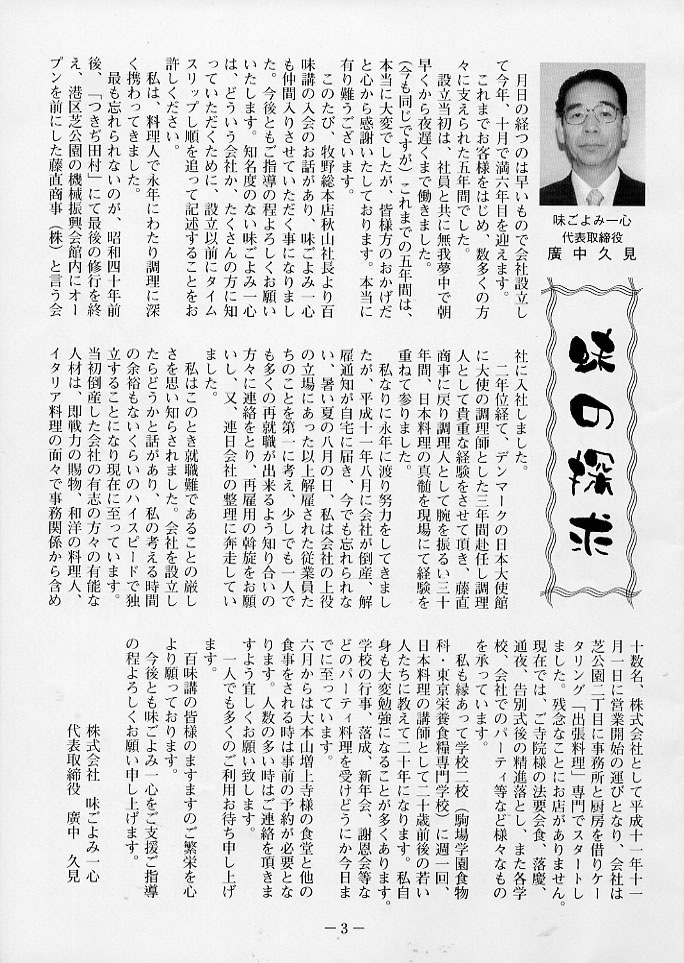 味の探求
味ごよみ一心
代表取締役
廣中久見
月日の経つのは早いもので会社設立し
て今年、十月で満六年目を迎えます。
これまでお客様をはじめ、数多くの方
々に支えられた五年間でした。
設立当初は、社員と共に無我夢中で朝
早くから夜遅くまで働きました。
(今も同じですが)これまでの五年間は、
本当に大変でしたが、皆様方のおかげだ
と心から感謝いたしております。本当に
有り難うございます。
このたび、牧野総本店秋山社長より百
味講の入会のお話があり、味ごよみ一心
も仲間入りさせていただく事になりまし
た。今後ともご指導の程よろしくお願い
いたします。知名度のない味ごよみ一心
は、どういう会社か、たくさんの方に知
っていただくために、設立以前にタイム
スリップし順を追って記述することをお
許しください。
私は、料理人で永年にわたり調理に深
く携わってきました。
最も忘れられないのが、昭和四十年前
後、「つきぢ田村」にて最後の修行を終
え、港区芝公園の機械振興会館内にオー
プンを前にした藤直商事(株)と言う会
社に入社しました。
二年位経て、デンマークの日本大使館
に大使の調理師とした三年間赴任し調理
人として貴重な経験をさせて頂き、藤直
商事に戻り調理人として腕を振るい三十
年間、日本料理の真髄を現場にて経験を
重ねて参りました。
私なりに永年に渡り努力をしてきまし
たが、平成十一年八月に会社が倒産、解
雇通知が自宅に届き、今でも忘れられな
い、暑い夏の八月の日、私は会社の上役
の立場にあった以上解雇された従業員た
ちのことを第一に考え、少しでも一人で
も多くの再就職が出来るよう知り合いの
方々に連絡をとり、再雇用の斡旋をお願
いし、又、連日会社の整理に奔走してい
ました。
私はこのとき就職難であることの厳し
さを思い知らされました。会社を設立し
たらどうかと話があり、私の考える時間
の余裕もないくらいのハイスピードで独
立することになり現在に至っています。
当初倒産した会社の有志の方々の有能な
人材は、即戦力の賜物、和洋の料理人、
イタリア料理の面々で事務関係から含め
十数名、株式会社として平成十一年十一
月一日に営業開始の運びとなり、会社は
芝公園二丁目に事務所と厨房を借りケー
タリング「出張料理」専門でスタートし
ました。残念なことにお店がありません。
現在では、ご寺院様の法要会食、落慶、
通夜、告別式後の精進落とし、また各学
校、会社でのパーティ等など様々なもの
を承っています。
私も縁あって学校二校(駒場学園食物
科・東京栄養食糧専門学校)に週一回、
日本料理の講師として二十歳前後の若い
人たちに教えて二十年になります。私自
身も大変勉強になることが多くあります。
学校の行事、落成、新年会、謝恩会等な
どのパーティ料理を受けどうにか今日ま
でに至っています。
六月からは大本山増上寺様の食堂と他の
食事をされる時は事前の予約が必要とな
ります。人数の多い時はご連絡を頂きま
すよう宜しくお願い致します。
一人でも多くのご利用お待ち申し上げ
ます。
百味講の皆様のますますのご繁栄を心
より願っております。
今後とも味ごよみ一心をご支援ご指導
の程よろしくお願い申し上げます。
株式会社 味ごよみ一心
代表取締役 廣中 久見
―3―